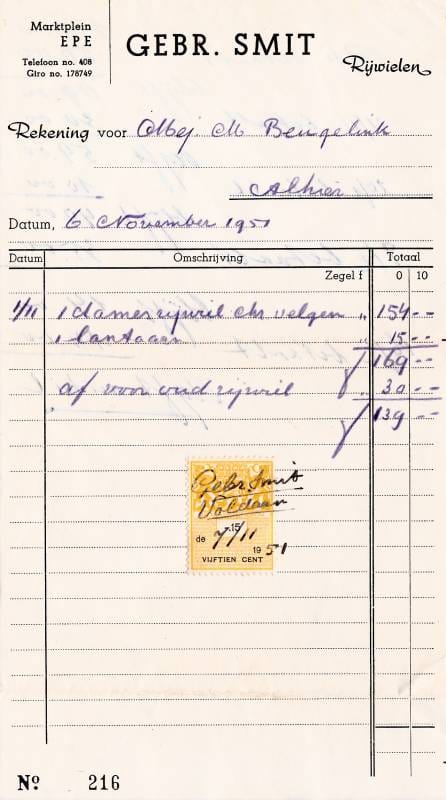 Marktplein
EPE
Telefoon no. 408
Giro no. 178749
GEBR. SMIT
Rijwielen
Rekening voor Mej. M Beugelink
Alhier
Datum, 6 November 1951
Datum Omschrijving Totaal
Zegel f 0 10
1/11 1 damesrijwiel chr velgen „ 154 --
1 lantaarn „ 15 --
169 --
af voor oud rijwiel „ 30 --
139 --
Gebr. Smit
Voldaan
15
de 7/11 1951
VIJFTIEN CENT
No 216